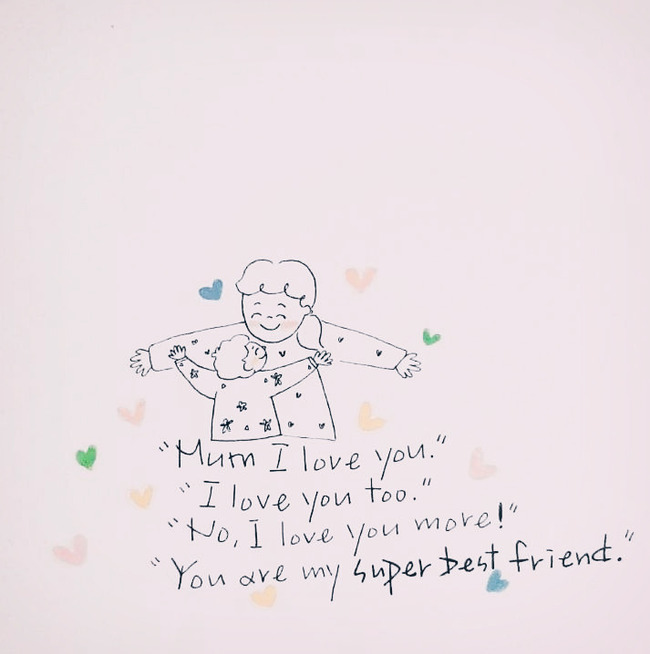 "Mum I love you."
"I love you too."
"No, I love you more!"
"You are my super best friend."